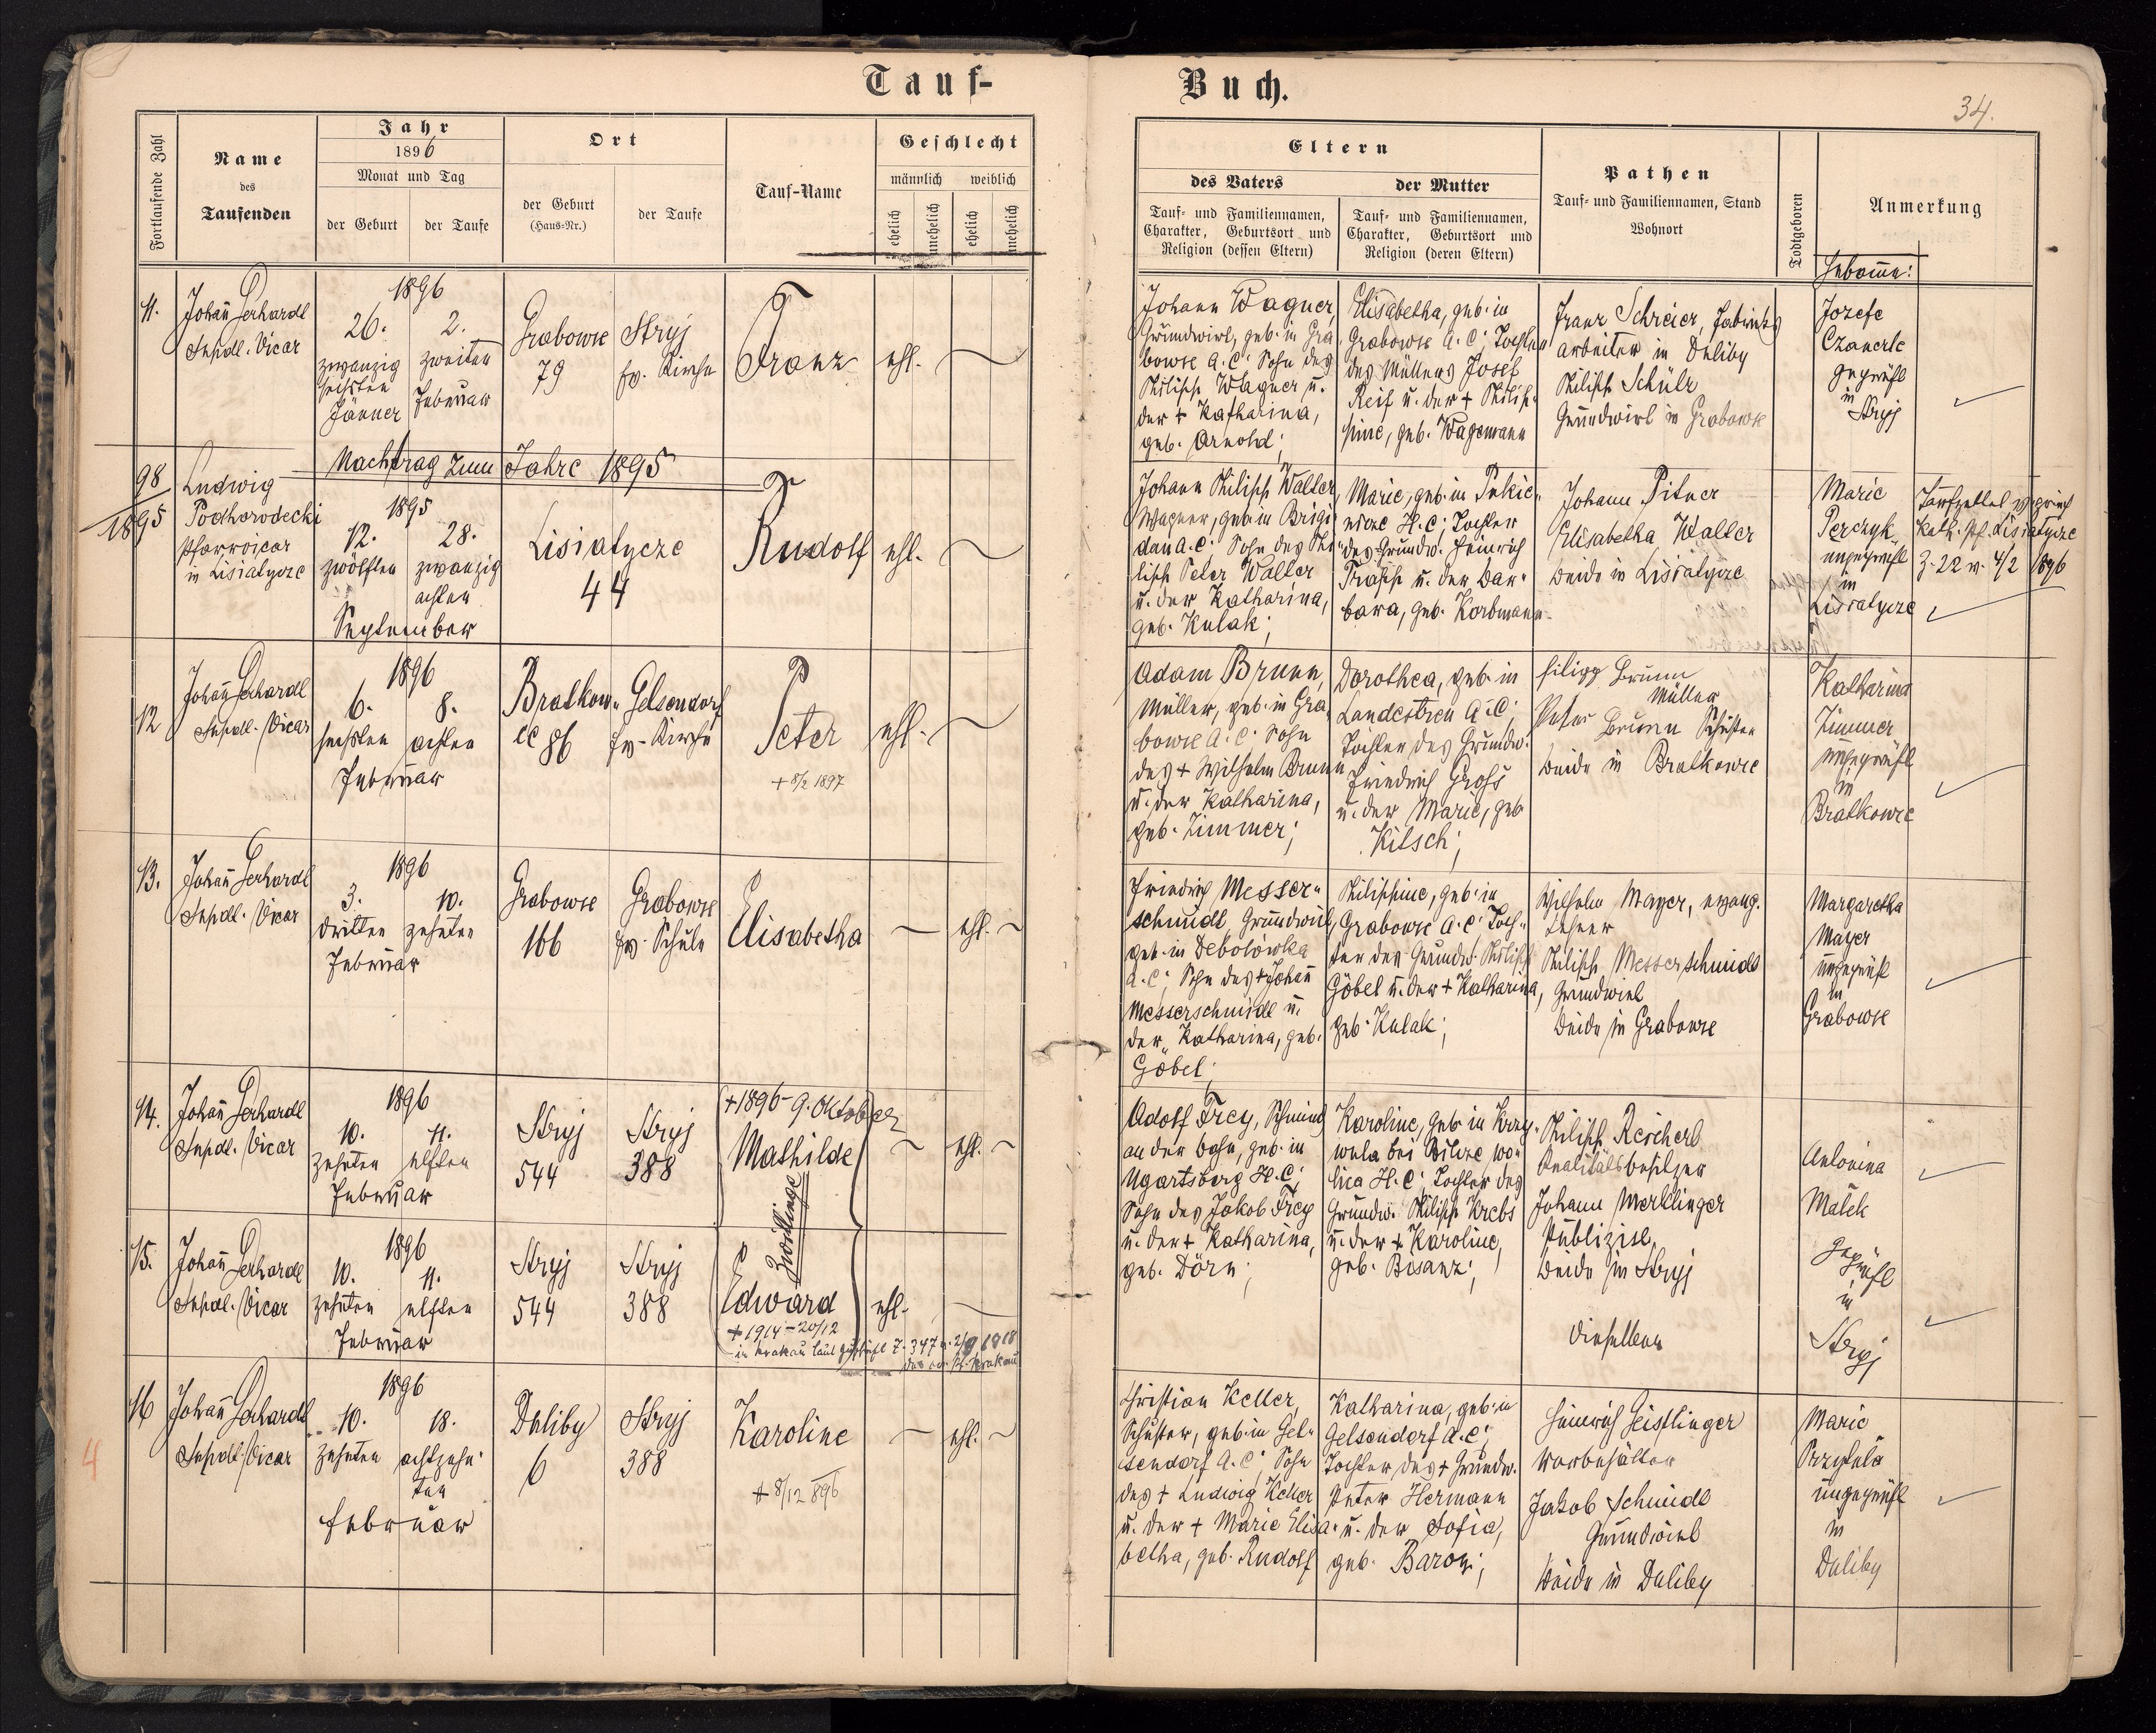 Tauf-
Buch.
34.
Fortlaufende Zahl
Name
des
Taufenden
Jahr
1896
Monat und Tag
der Geburt
der Taufe
Ort
der Geburt
(Haus-Nr.)
der Taufe
Tauf-Name
Geschlecht
männlich
weiblich
ehelich
unehelich
ehelich
unehelich
Eltern
des Vaters
Tauf- und Familiennamen,
Charakter, Geburtsort und
Religion (dessen Eltern)
der Mutter
Tauf- und Familiennamen,
Charakter, Geburtsort und
Religion (deren Eltern)
Pathen
Tauf- und Familiennamen, Stand
Wohnort
Todtgeboren
Anmerkung
Hebame:
11.
Supdl. Vicar
1896
26.
zwanzig
sechsten
Jänner
2.
zweiten
Februar
Grabowce
79
Stryj
ev. Kirche
Franz
ehl.
Johann Wagner,
Grundwirt, geb. in Gra
bowce A.C; Sohn des
Philipp Wagner u.
der + Katharina,
geb. Arnold;
Elisabetha, geb. in
Grabowce A.C; Tochter
des Müllers Josef
Reif u. der + Philip-
pine, geb. Wagemann
Franz Schreier, Fabriks
arbeiter in Duliby
Philipp Schülr
Grundwirt in Grabowce
Jozefe
geprüft
in
Stryj
98
1895
Nachtrag zum Jahre 1895
Ludwig
Podhorodecki
Pfarrvicar
in Lisiatycze
1895
12.
zwölften
28.
zwanzig
achten
September
Lisiatycze
44
Rudolf
ehl.
Johann Philipp Walter,
Wagner, geb. in Brigi
dau A.C; Sohn des Phi
lipp Peter Walter
u. der Katharina,
geb. Kulak;
Marie, geb. in
H.C; Tochter
des Grundw. Heinrich
u. der Bar-
bara, geb. Korbmann
Johann Pitner
Elisabetha Walter
beide in Lisiatycze
Marie
Perczyk
ungeprüft
in
Lisiatycze
Kath. Pf. Lisiatycze
Z. 22 v. 4/2 1896
12
Supdl. Vicar
1896
6.
sechsten
8.
achten
Februar
Bratkow-
ce 86
Gelsendorf
ev. Kirche
Peter
+ 8/2 1897
ehl.
Adam Brunn,
Müller, geb. in Gra
bowce A.C; Sohn
des + Wilhelm Brunn
u. der Katharina,
geb. Zimmer;
Dorothea, geb. in
Landestreu A.C;
Tochter des Grundw.
Friedrich Groß
u. der Marie, geb
Kitsch;
Filipp Brunn
Müller
Peter Brunn Schuster
beide in Bratkowce
Katharina
Zimmer
ungeprüft
in
Bratkowce
13.
Supdl. Vicar
1896
3.
dritten
10.
zehnten
Februar
Grabowce
166
Grabowce
ev. Schule
Elisabetha
ehl.
Friedrich Messer-
schmidt, Grundwirt,
geb. in Debolówka
A.C; Sohn des + Johann
Messerschmidt u.
der Katharina, geb.
Göbel;
Philippine, geb. in
Grabowce A.C; Toch-
ter des Grundw. Philipp
Göbel u. der + Katharina,
geb. Kulak;
Wilhelm Mayer, evang.
Lehrer
Philipp Messerschmidt
Grundwirt
beide in Grabowce
Margaretha
Mayer
ungeprüft
in
Grabowce
14.
Supdl. Vicar
1896
10.
zehnten
11.
elften
Februar
Stryj
544
Stryj
388
+ 1896 - 9. Oktober
Mathilde
Zwillinge
ehl.
Adolf Frey, Schmied
an der Bahn, geb. in
Ugartsberg H.C;
Sohn des Jakob Frey
u. der + Katharina,
geb. Dörn;
Karoline, geb. in
H.C; Tochter des
Grundw. Philipp Krebs
u. der + Karoline,
geb. Bisanz;
Philipp Reichert
Realitätsbesitzer
Johann Merklinger
beide in Stryj
Antonina
Malek
geprüft
in
Stryj
15.
Supdl. Vicar
1896
10.
zehnten
11.
elften
Februar
Stryj
544
Stryj
388
Edward
+ 1914 - 20/12
in Krakau laut
ehl.
dieselben
16
Supdl. Vicar
1896
10.
zehnten
18.
achtzehn-
ten
Februar
Duliby
6
Stryj
388
Karoline
+ 8/12 896
ehl.
Christian Keller,
Schuster, geb. in Gel-
sendorf A.C; Sohn
des + Ludwig Keller
u. der + Marie Elisa-
betha, geb. Rudolf
Katharina, geb. in
Gelsendorf A.C;
Tochter des + Grundw.
Peter Hermann
u. der Sofia,
geb. Baron;
Heinrich Geistlinger
Jakob Schmidt
Grundwirt
beide in Duliby
Marie
Przytula
ungeprüft
in
Duliby
4